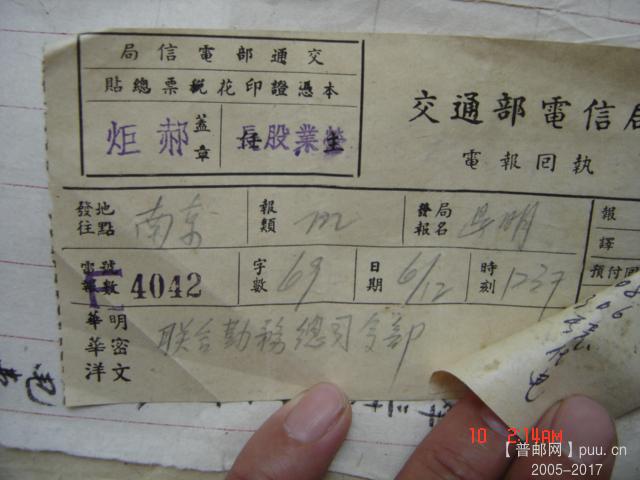 局信電部通交
貼總票稅花印證憑本
炬郝 蓋章 長股業營
交通部電信局
電報回執
發往地點 南京 報類 發報局名 昆明 報
譯
電報號數 4042 字數 69 日期 6/12 時刻 1237 預付回
華明
華密
洋文
聯合勤務總司令部
10 2:14AM
【普邮网】puu.cn
2005-2017